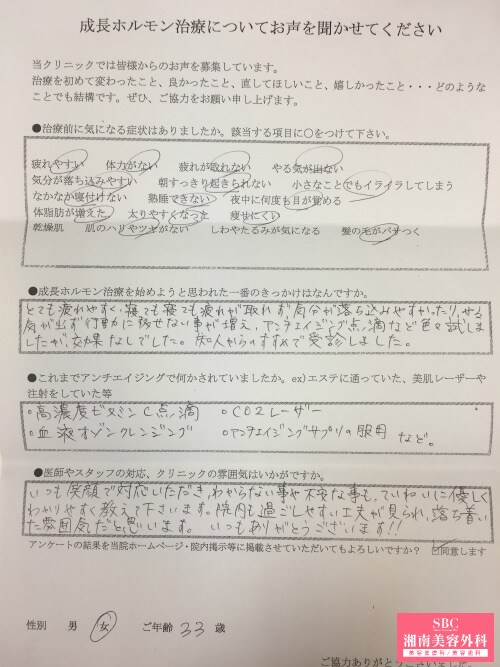 成長ホルモン治療についてお声を聞かせてください
当クリニックでは皆様からのお声を募集しています。
治療を初めて変わったこと、良かったこと、直してほしいこと、嬉しかったこと・・・どのような
ことでも結構です。ぜひ、ご協力をお願い申し上げます。
●治療前に気になる症状はありましたか。該当する項目に○をつけて下さい。
疲れやすい 体力がない 疲れが取れない やる気が出ない
気分が落ち込みやすい 朝すっきり起きられない 小さなことでもイライラしてしまう
なかなか寝付けない 熟睡できない 夜中に何度も目が覚める
体脂肪が増えた 太りやすくなった 痩せにくい
乾燥肌 肌のハリやツヤがない しわやたるみが気になる 髪の毛がパサつく
●成長ホルモン治療を始めようと思われた一番のきっかけはなんですか。
とても疲れやすく、寝ても寝ても疲れが取れず、気分が落ち込みやすかったり、やる
気が出ず行動に移せない事が増え、アンチエイジング点滴など色々試しま
したが、効果なしでした。知人からのすすめで受診しました。
●これまでアンチエイジングで何かされていましたか。ex)エステに通っていた、美肌レーザーや
注射をしていた等
・高濃度ビタミンC点滴 ・CO2レーザー
・血液オゾンクレンジング ・アンチエイジングサプリの服用 など。
●医師やスタッフの対応、クリニックの雰囲気はいかがですか。
いつも笑顔で対応いただき、わからない事や不安な事も、ていねいに優しく
わかりやすく教えて下さいます。院内も過ごしやすい工夫が見られ、落ち着い
た雰囲気だと思います。 いつもありがとうございます!!
アンケートの結果を当院ホームページ・院内掲示等に掲載させていただいてもよろしいですか? ☑同意します
性別 男 女 ご年齢 33 歳
SBC
湘南美容外科
美容皮膚科/美容歯科
ご協力ありがとうございました。